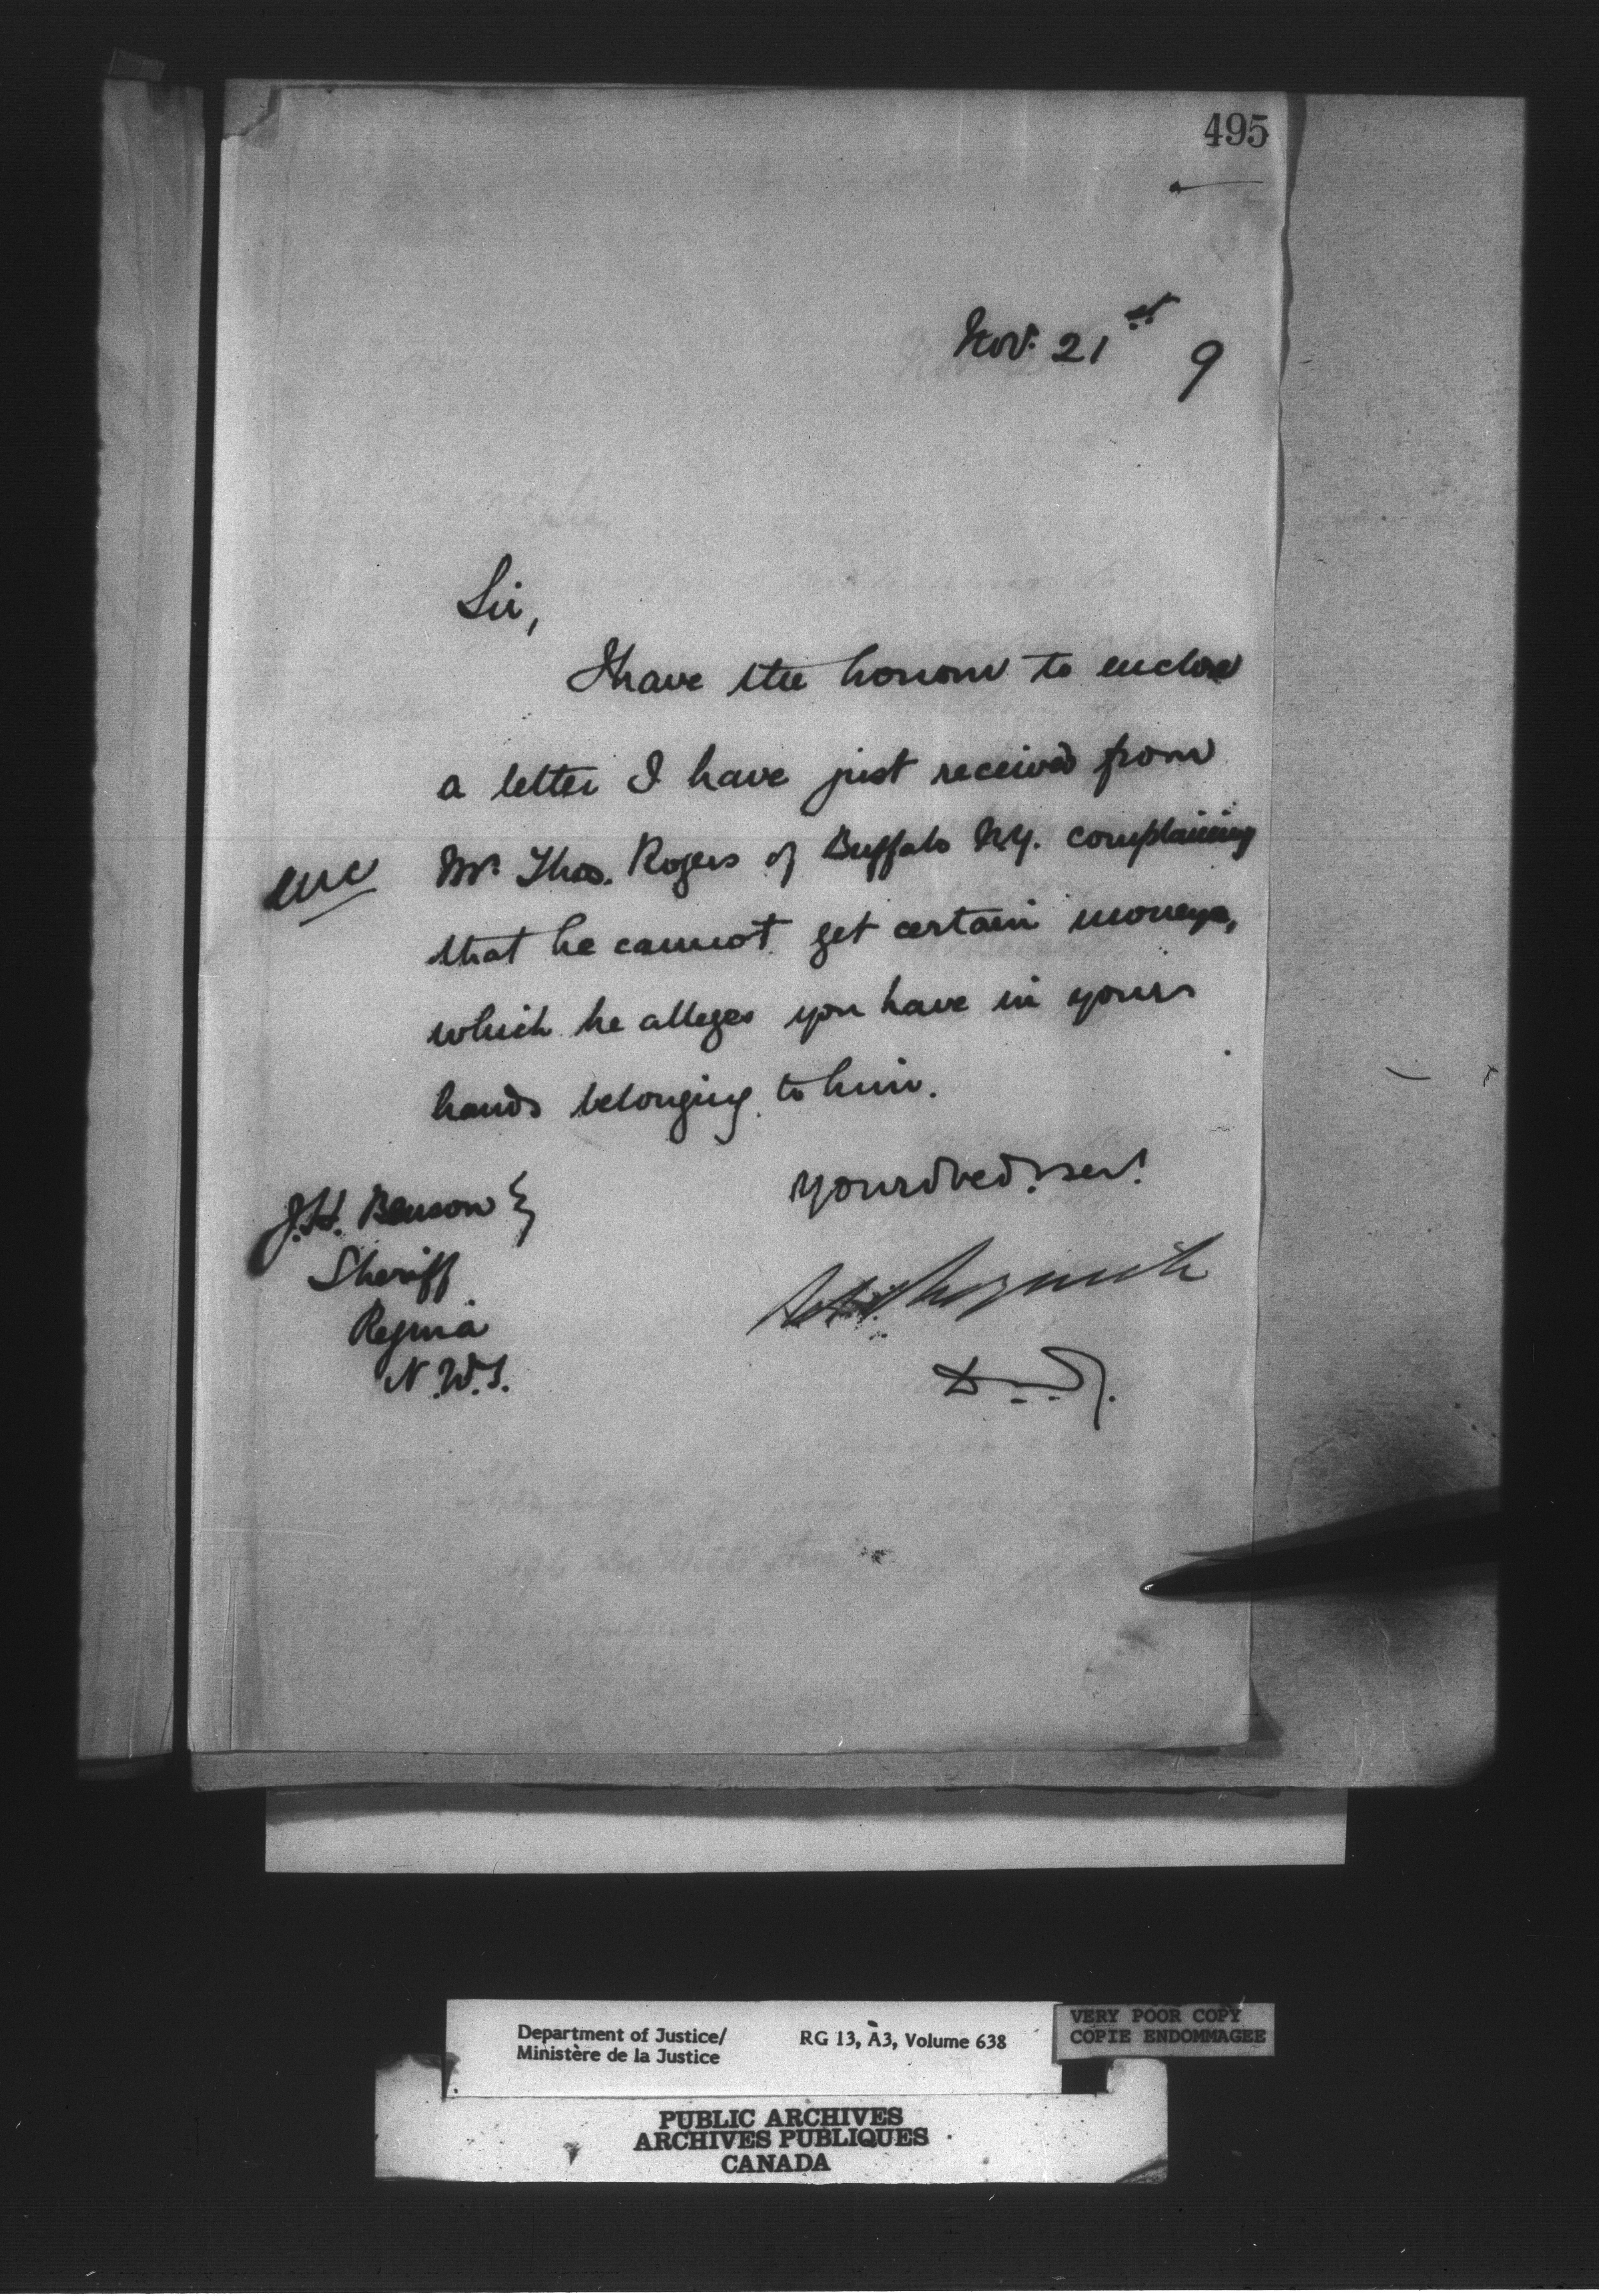 495
Nov. 21st 9
Sir,
I have the honour to enclose
a letter I have just received from
enc Mr. Thos. Rogers of Buffalo N.Y. complaining
that he cannot get certain moneys,
which he alleges you have in yours
hands belonging to him.
Your obed. ser!
J.H. Benson
Sheriff
Regina
N.W.T.
D.M.J.
Department of Justice/
Ministère de la Justice
RG 13, A3, Volume 638
VERY POOR COPY
COPIE ENDOMMAGEE
PUBLIC ARCHIVES
ARCHIVES PUBLIQUES
CANADA